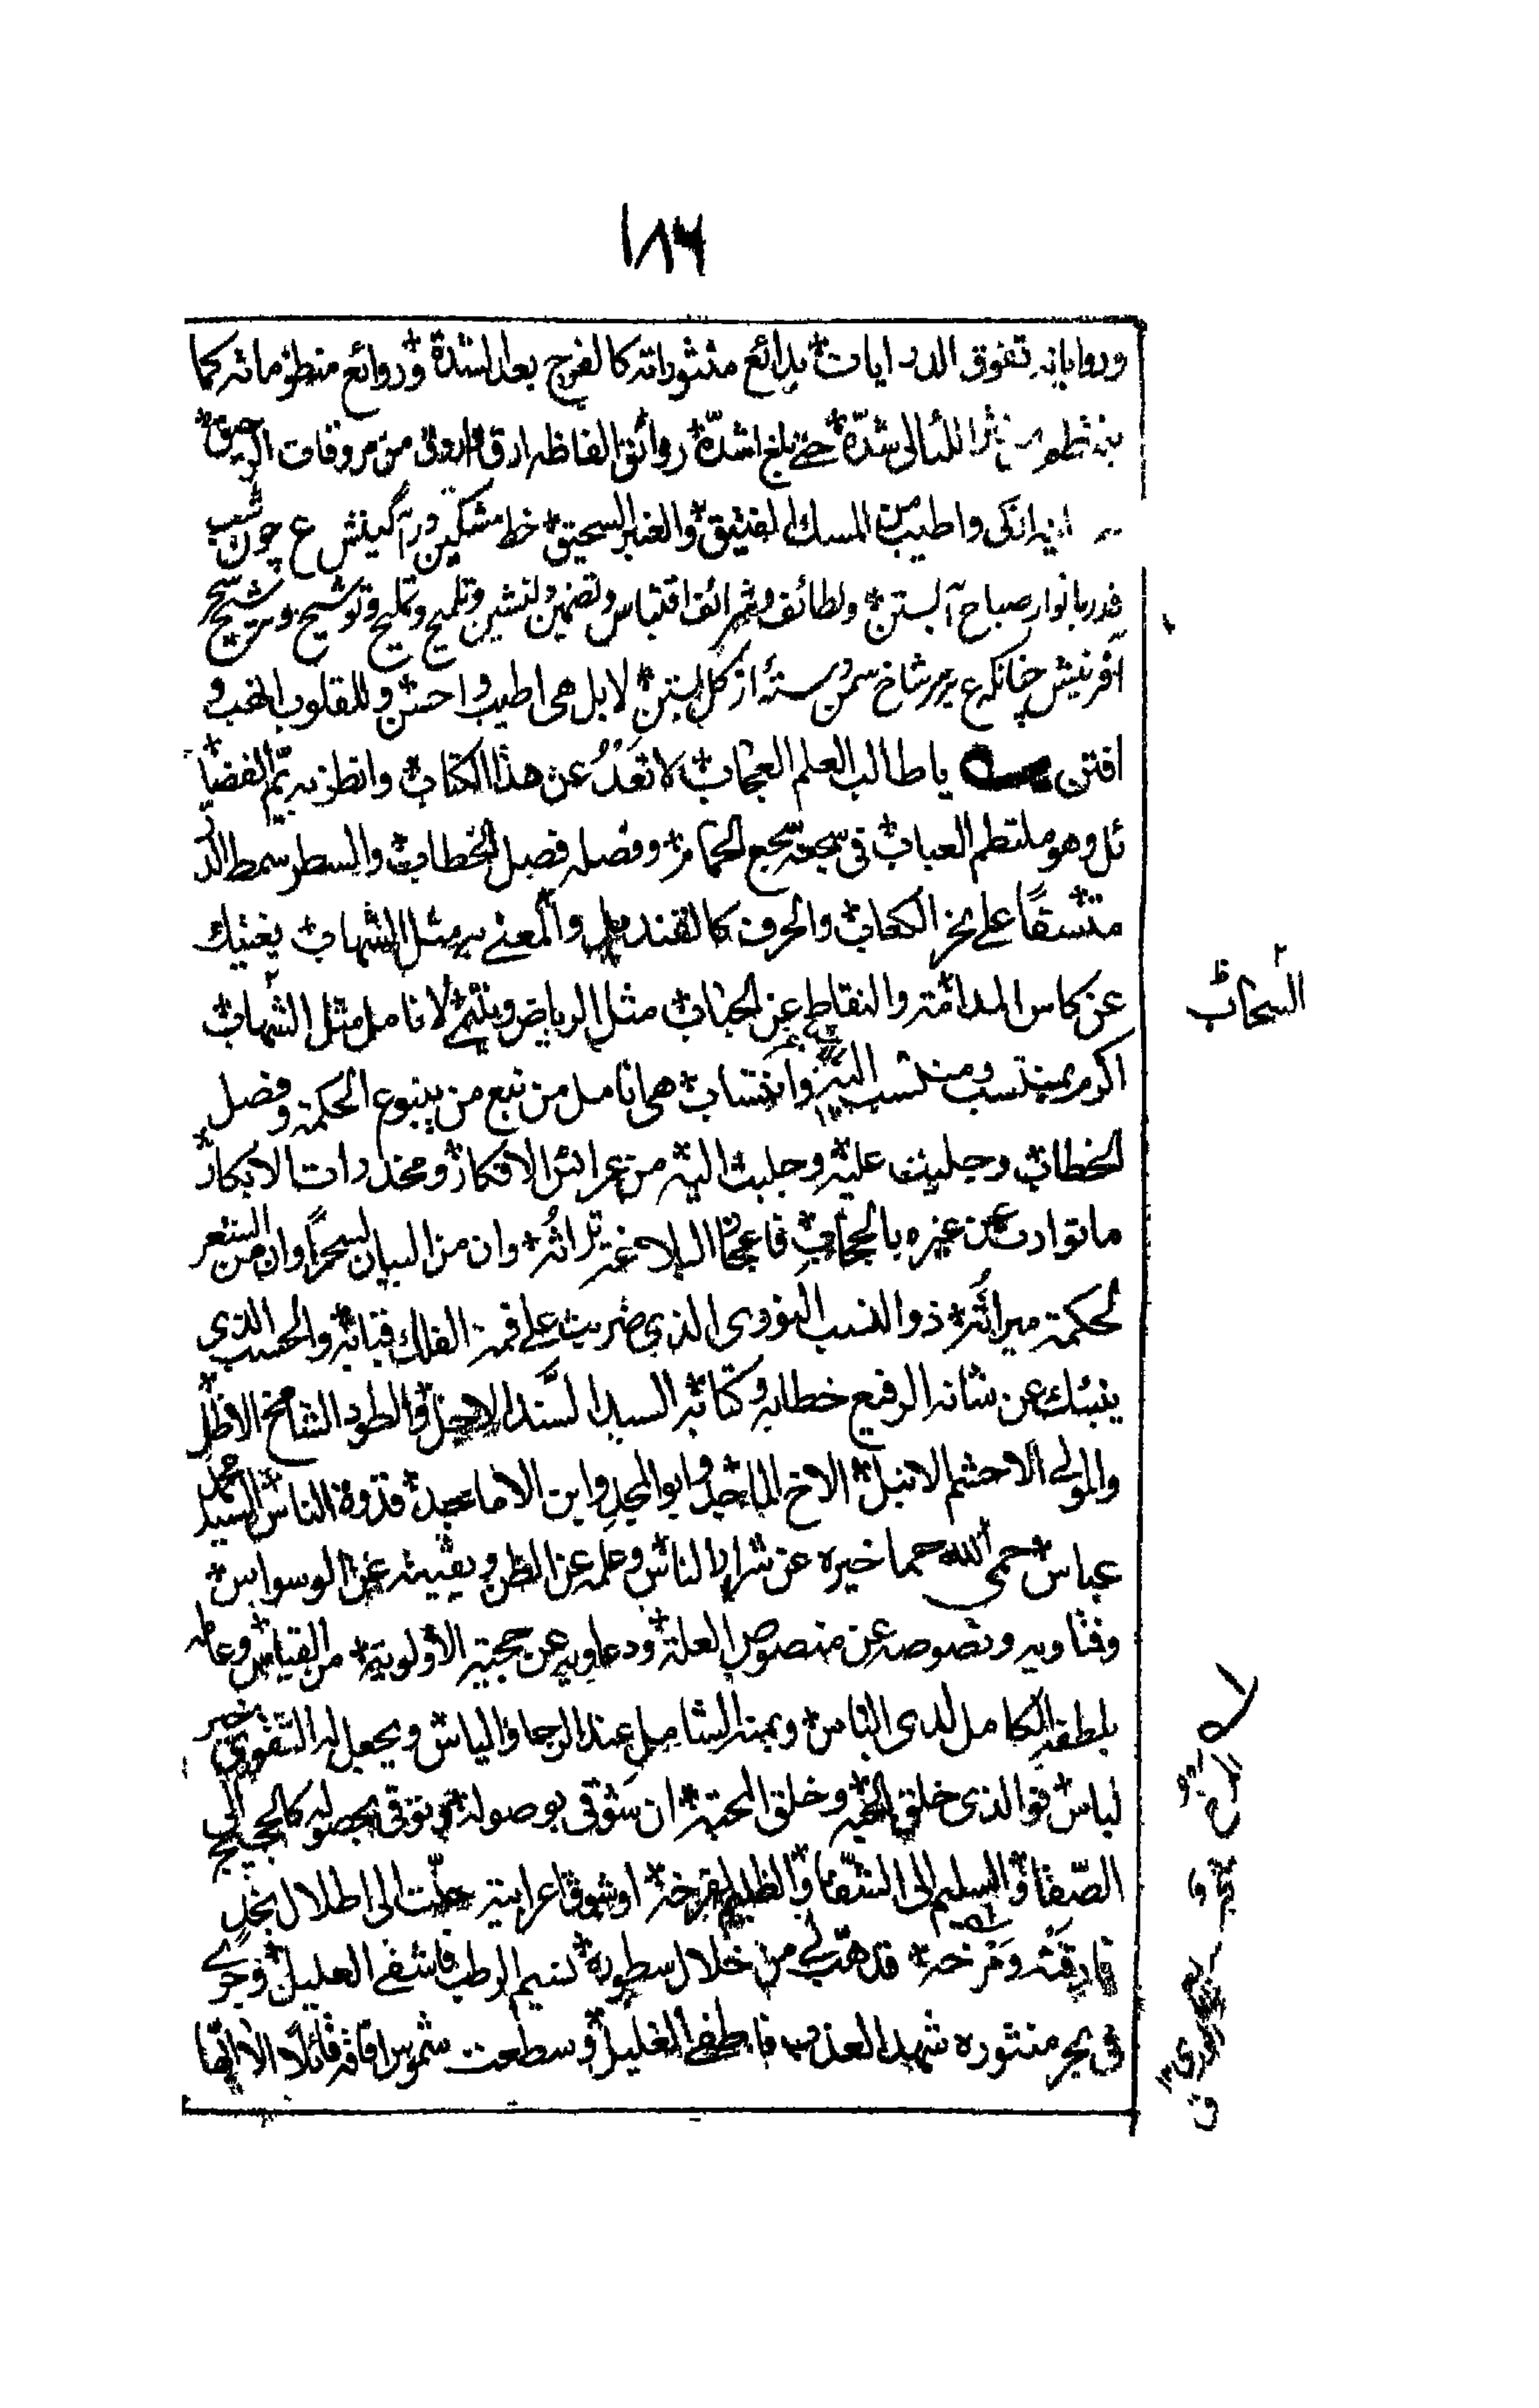 ١٨٦
ورواياته تفوق الدرايات بدائع منثوراته كالفرج بعد الشدة وروائع منظوماته كما
نثر اللئالى شدّة حتے بلغ اشدّه روائق الفاظه ارق واروق من مروقات الرحيق
ازكى واطيب من المسك الفتيق والعنبر السحيق خط مشكين در آگينش ع چون شب
قدر بانوار صباح آبستن ولطائف وشرائف اقتباس وتضمين دلنشين وتلميح وتمليح وتوشيح وترشيح سحر
آفرينش چنانكه ع بر سر شاخ سمن رسته از گل بستن لا بل هى اطيب واحسن وللقلوب اخب و
افتن يا طالب العلم العجاب لا تعدُ عن هذا الكتاب وانظر به تمّ الفضا
ئل وهو ملتطم العباب فى سجعه سجع الحمائم وفصله فصل الخطاب والسطر سمط الدر
متسقاً على نحر الكعاب والحرف كالقنديل والمعنے به مثل الشهاب يغنيك
عن كاس المدامة والنقاط عن الحباب مثل الرياض وينتمے لانامل مثل الشهاب
السحاب
اكرم بمنتسب ومنتسب اليه وانتساب هى انامل من نبع من ينبوع الحكمة وفصل
الخطاب وجليت عليه وجلبت اليه من عرائس الافكار ومخدرات الابكار
ما توارت عن غيره بالحجاب فاعجاز البلاغة تراثه وان من البيان لسحراً وان من الشعر
لحكمة ميراثه ذو النسب الـ الذى ضربت على قمة الفلك قبابه والحسب الذى
ينبئك عن شانه الرفيع خطابه وكتابه السيد السّند الاجل والطود الشامخ الاظل
والمولے الاحشم الانبل الاخ الماجد وابو المجد وابن الاماجد قدوة الناس السيد محمد
عباس حمى الله حما خيره عن شرار الناس وعلمه عن الظن ويقينه عن الوسواس
وفتاويه ونصوصه عن منصوص العلة ودعاويه عن حجية الاولوية من القياس وعامله
بلطفه الكامل لدى الباس وبمنه الشامل عند الرجا والياس ويجعل له التقوى خير
لباس فو الذى خلق الحبه وخلق المحبة ان شوقى بوصوله وتوقى بحصوله كالحجيج الى
الصّفا والسليم الى الشّفا والظليم لفرخة او شوق اعرابية حنّت الى اطلال نجد
فارقته ومرخه قد هبّ لے من خلال سطوره نسيم الرطب فاشفے العليل وجرے
فى بحر منثوره شهد العذب فاطفے الغليل وسطعت شموس افاقه قائلا الا ايها